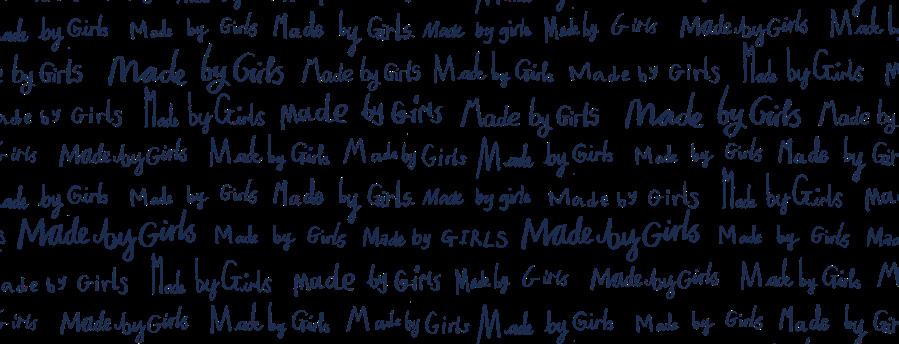 Made by Girls Made by Girls Made by Girls. Made by girls Made by Girls Made by Girls Made by
by Girls Made by Girls Made by Girls Made by Girls Made by Girls Made by Girls
Made by Girls Made by Girls Made by Girls Made by Girls Made by Girls Made by
Girls Made by Girls Made by Girls Made by Girls Made by Girls Made by Girls Made by
Made by Girls Made by Girls Made by Girls. Made by girls Made by Girls Made by Girls
Made by Girls Made by Girls Made by GIRLS Made by Girls Made by Girls
Made by Girls Made by Girls Made by Girls Made by Girls Made by Girls Made by Girls
Girls Made by Girls Made by Girls Made by Girls Made by Girls Made by Girls Made by